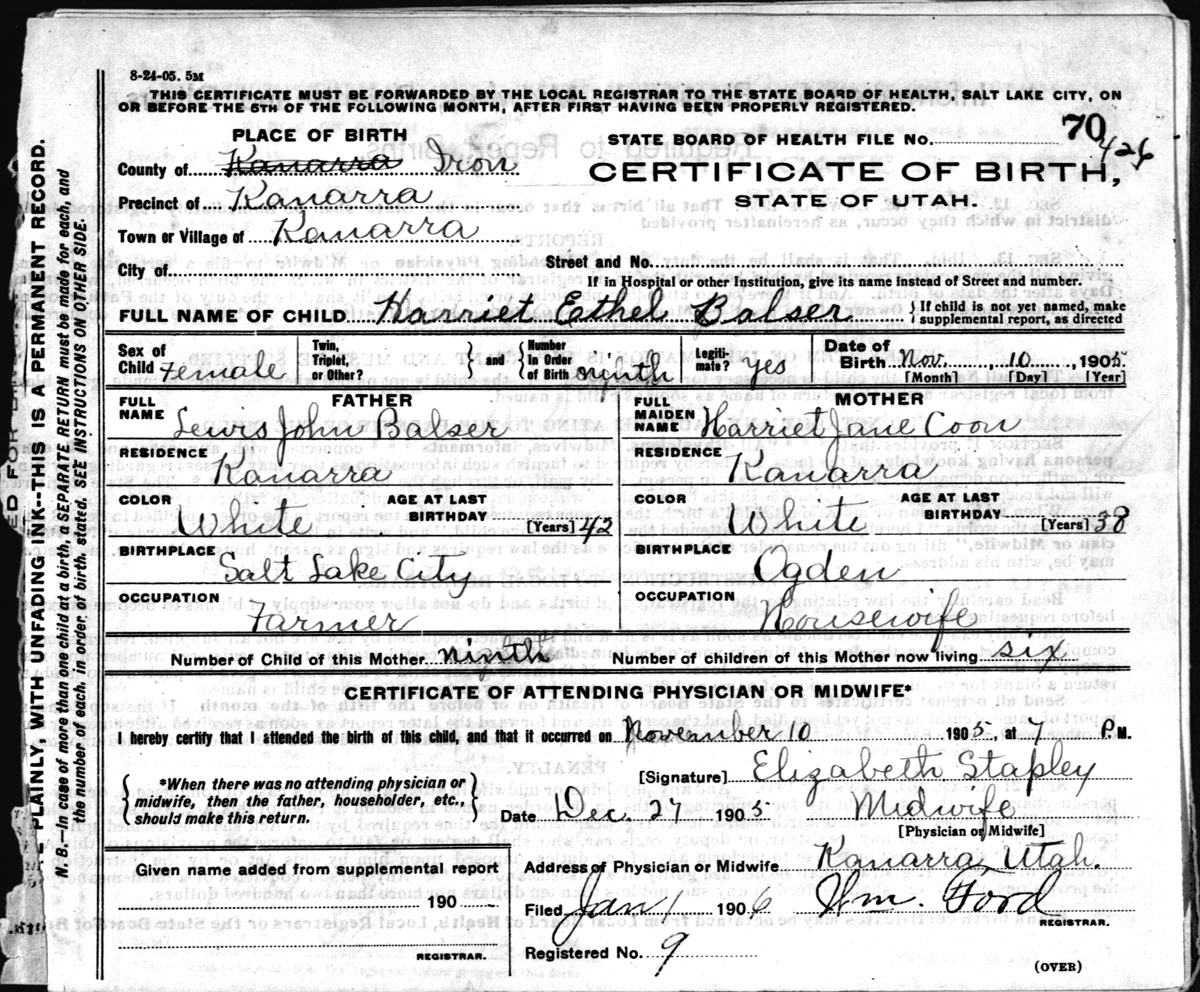 8-24-05. 5M
THIS CERTIFICATE MUST BE FORWARDED BY THE LOCAL REGISTRAR TO THE STATE BOARD OF HEALTH, SALT LAKE CITY, ON
OR BEFORE THE 5TH OF THE FOLLOWING MONTH, AFTER FIRST HAVING BEEN PROPERLY REGISTERED.
PLACE OF BIRTH
County of Kanarra Iron
Precinct of Kanarra
Town or Village of Kanarra
City of
STATE BOARD OF HEALTH FILE NO. 70 426
CERTIFICATE OF BIRTH,
STATE OF UTAH.
Street and No.
If in Hospital or other Institution, give its name instead of Street and number.
FULL NAME OF CHILD Harriet Ethel Balser } If child is not yet named, make supplemental report, as directed
Sex of Child Female Twin, Triplet, or Other? } and { Number In Order of Birth ninth Legiti- mate? yes Date of Birth Nov. 10, 1905
[Month] [Day] [Year]
FATHER
FULL NAME Lewis John Balser
RESIDENCE Kanarra
COLOR White AGE AT LAST BIRTHDAY [Years] 42
BIRTHPLACE Salt Lake City
OCCUPATION Farmer
MOTHER
FULL MAIDEN NAME Harriet Jane Coon
RESIDENCE Kanarra
COLOR White AGE AT LAST BIRTHDAY [Years] 38
BIRTHPLACE Ogden
OCCUPATION Housewife
Number of Child of this Mother ninth Number of children of this Mother now living six
CERTIFICATE OF ATTENDING PHYSICIAN OR MIDWIFE*
I hereby certify that I attended the birth of this child, and that it occurred on November 10 1905 at 7 P.M.
{ *When there was no attending physician or
midwife, then the father, householder, etc.,
should make this return. }
[Signature] Elizabeth Stapley
Date Dec. 27 1905 Midwife
[Physician or Midwife]
Given name added from supplemental report
190
REGISTRAR.
Address of Physician or Midwife Kanarra Utah.
Filed Jan 1 1906 Wm. Ford
REGISTRAR.
Registered No. 9
(OVER)
PLAINLY, WITH UNFADING INK--THIS IS A PERMANENT RECORD.
N.B.—In case of more than one child at a birth, a SEPARATE RETURN must be made for each, and
the number of each, in order of birth stated. SEE INSTRUCTIONS ON OTHER SIDE.